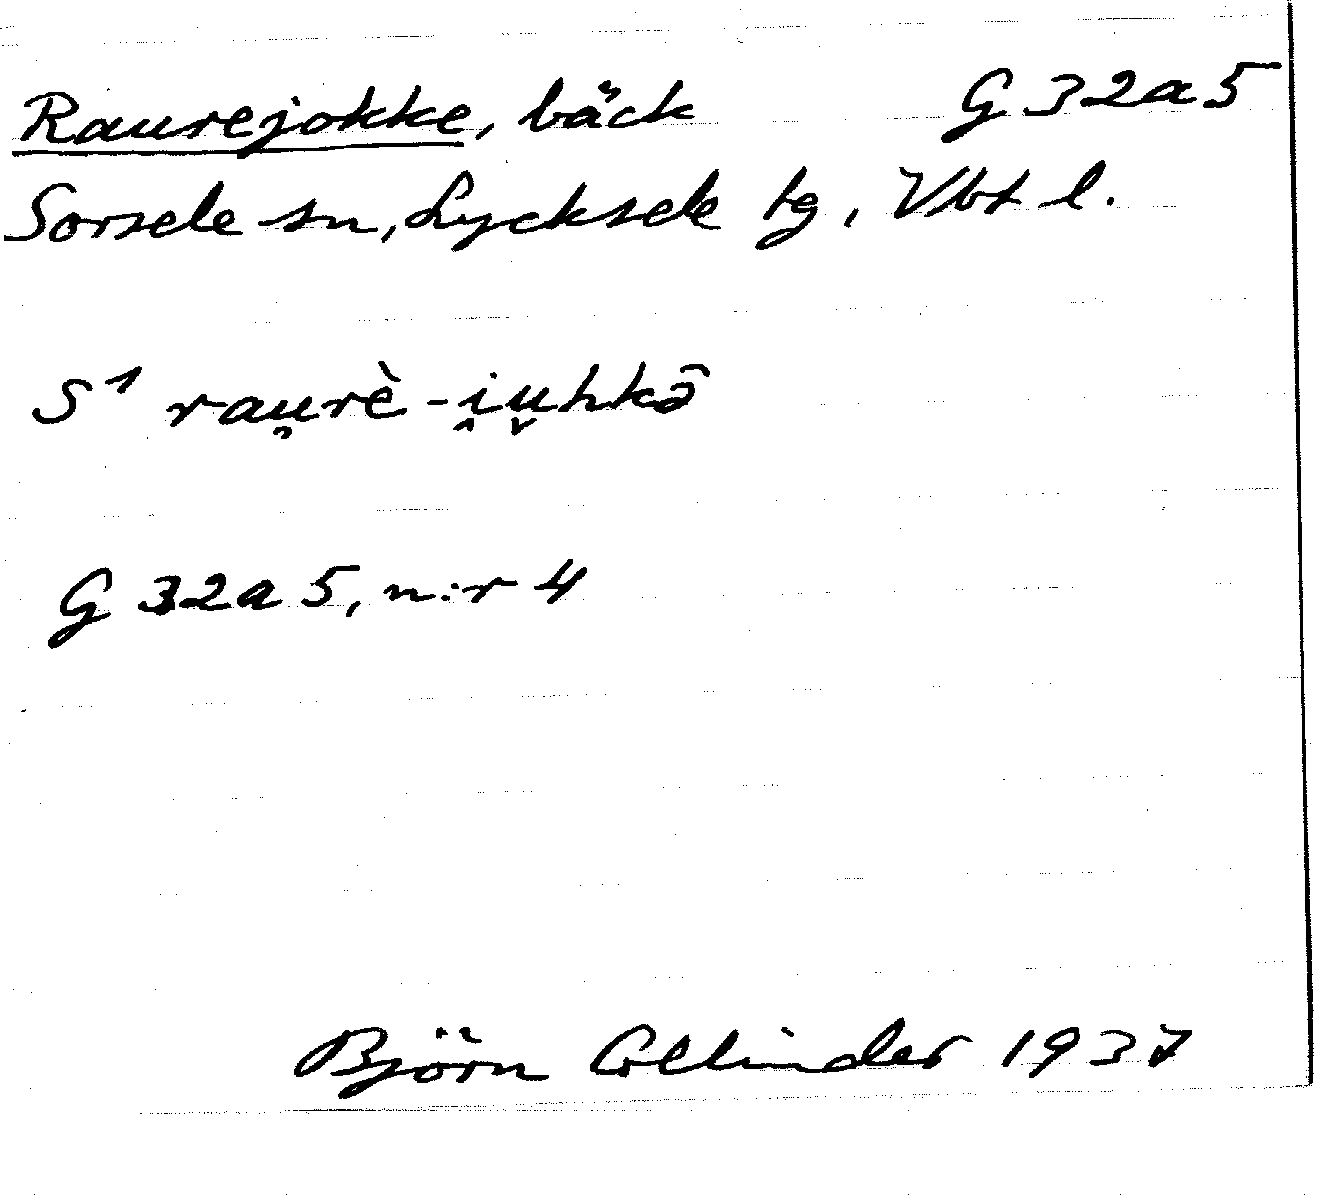 Raurejokke, bäck G 32a5
Sorsele sn, Lycksele tg, Vbt l.
S¹ rau̯rè-i̭u̬hkə̄
G 32a5, n:r 4
Björn Collinder 1937